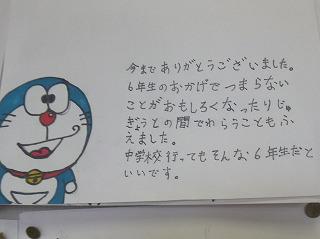 今までありがとうございました。
6年生のおかげでつまらない
ことがおもしろくなったりじ
ぎょうとの間でわらうこともふ
えました。
中学校行ってもそんな6年生だと
いいです。